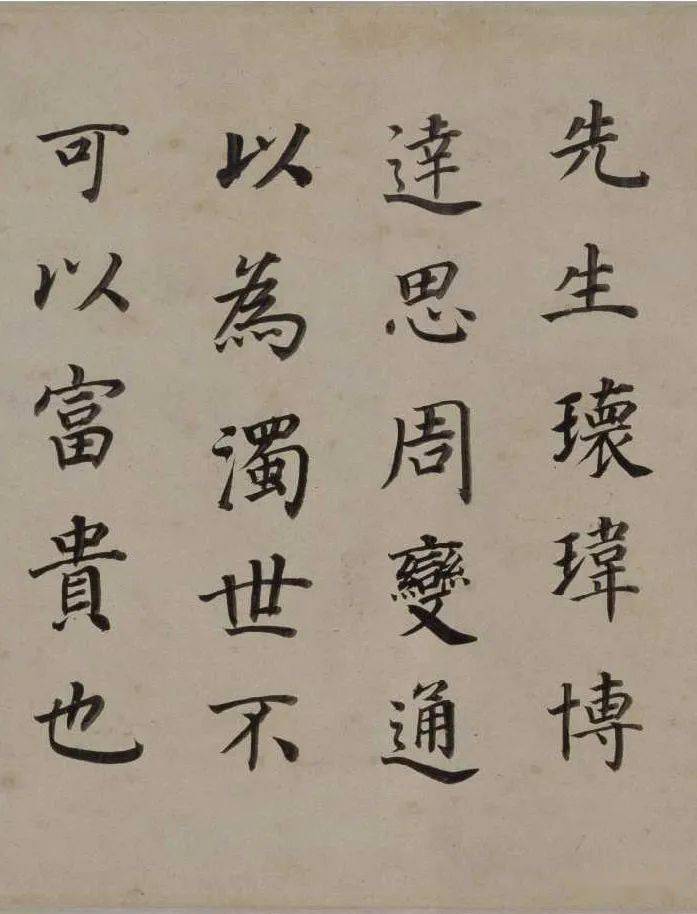 先生瓌瑋博
達思周變通
以為濁世不
可以富貴也